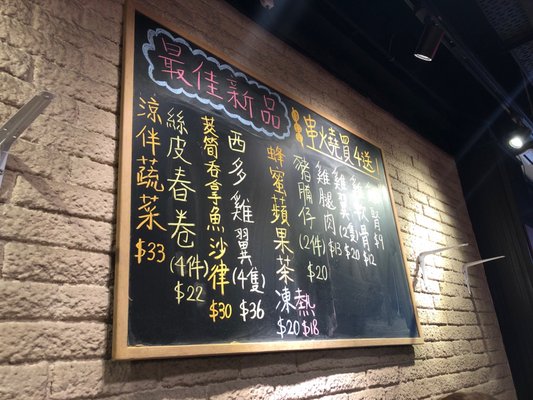 最佳新品
涼伴蔬菜 $33
絲皮春卷 (4件) $22
吞拿魚沙律 $30
西多雞翼 (4隻) $36
蜂蜜蘋果茶 凍 $20 熱 $18
串燒買4送
豬腩仔 (2件) $20
雞腿肉 $13
雞翼 (2隻) $20
軟骨 $12
腎 $9